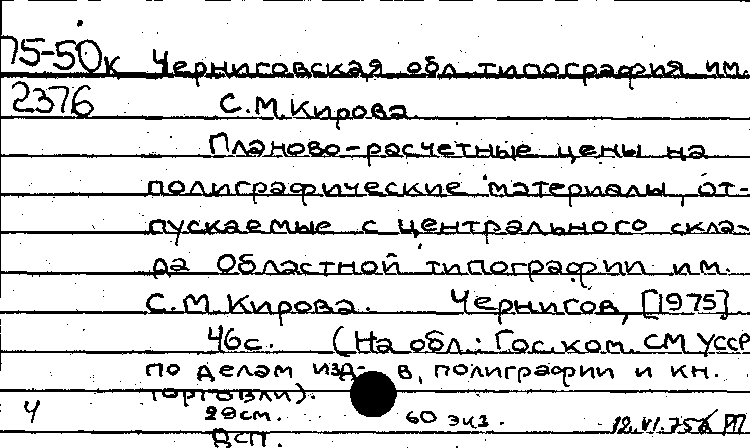 75-50к Черниговская обл типография им.
2376 С.М.Кирова
Планово-расчетные цены на
полиграфические материалы, от-
пускаемые с центрального скла-
да Областной типографии им.
С.М.Кирова. Чернигов, [1975]
46с. (На обл.: Гос.ком. СМ УССР
по делам изд-в, полиграфии и кн.
торговли).
Ч 29см. 60 экз. РП
Всп.